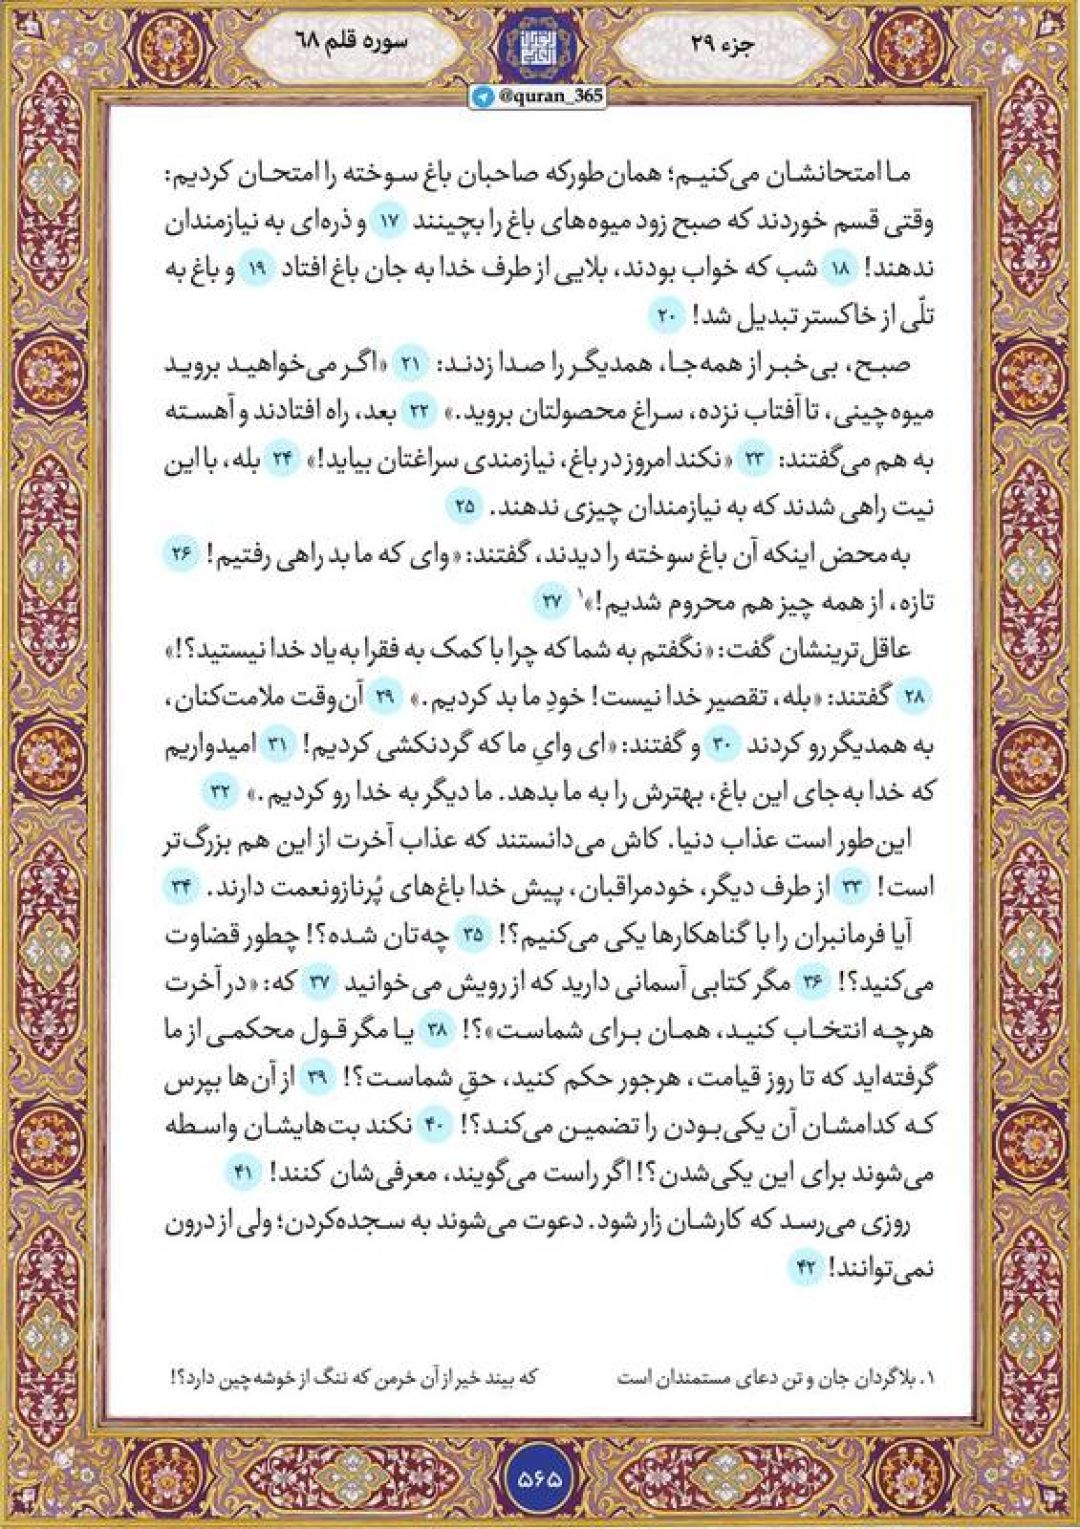 جزء ۲۹
سوره قلم ۶۸
@quran_365
ما امتحانشان می‌کنیم؛ همان‌طورکه صاحبان باغ سوخته را امتحان کردیم:
وقتی قسم خوردند که صبح زود میوه‌های باغ را بچینند ۱۷ و ذره‌ای به نیازمندان
ندهند! ۱۸ شب که خواب بودند، بلایی از طرف خدا به جان باغ افتاد ۱۹ و باغ به
تلّی از خاکستر تبدیل شد! ۲۰
صبح، بی‌خبر از همه‌جا، همدیگر را صدا زدند: ۲۱ «اگر می‌خواهید بروید
میوه‌چینی، تا آفتاب نزده، سراغ محصولتان بروید.» ۲۲ بعد، راه افتادند و آهسته
به هم می‌گفتند: ۲۳ «نکند امروز در باغ، نیازمندی سراغتان بیاید!» ۲۴ بله، با این
نیت راهی شدند که به نیازمندان چیزی ندهند. ۲۵
به‌محض اینکه آن باغ سوخته را دیدند، گفتند: «وای که ما بد راهی رفتیم! ۲۶
تازه، از همه چیز هم محروم شدیم!»۱ ۲۷
عاقل‌ترینشان گفت: «نگفتم به شما که چرا با کمک به فقرا به‌یاد خدا نیستید؟!»
۲۸ گفتند: «بله، تقصیر خدا نیست! خودِ ما بد کردیم.» ۲۹ آن‌وقت ملامت‌کنان،
به همدیگر رو کردند ۳۰ و گفتند: «ای وایِ ما که گردنکشی کردیم! ۳۱ امیدواریم
که خدا به‌جای این باغ، بهترش را به ما بدهد. ما دیگر به خدا رو کردیم.» ۳۲
این‌طور است عذاب دنیا. کاش می‌دانستند که عذاب آخرت از این هم بزرگ‌تر
است! ۳۳ از طرف دیگر، خودمراقبان، پیش خدا باغ‌های پُرنازونعمت دارند. ۳۴
آیا فرمانبران را با گناهکارها یکی می‌کنیم؟! ۳۵ چه‌تان شده؟! چطور قضاوت
می‌کنید؟! ۳۶ مگر کتابی آسمانی دارید که از رویش می‌خوانید ۳۷ که: «در آخرت
هرچه انتخاب کنید، همان برای شماست»؟! ۳۸ یا مگر قول محکمی از ما
گرفته‌اید که تا روز قیامت، هرجور حکم کنید، حقِ شماست؟! ۳۹ از آن‌ها بپرس
که کدامشان آن یکی‌بودن را تضمین می‌کند؟! ۴۰ نکند بت‌هایشان واسطه
می‌شوند برای این یکی‌شدن؟! اگر راست می‌گویند، معرفی‌شان کنند! ۴۱
روزی می‌رسد که کارشان زار شود. دعوت می‌شوند به سجده‌کردن؛ ولی از درون
نمی‌توانند! ۴۲
۱. بلاگردان جان و تن دعای مستمندان است که بیند خیر از آن خرمن که ننگ از خوشه‌چین دارد؟!
۵۶۵